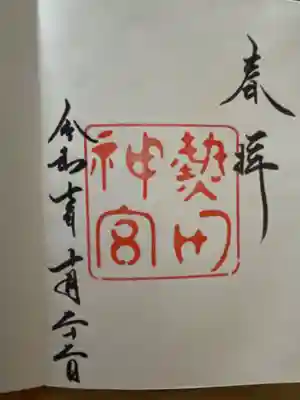 奉拝
熱田神宮
令和元年十月二十二日